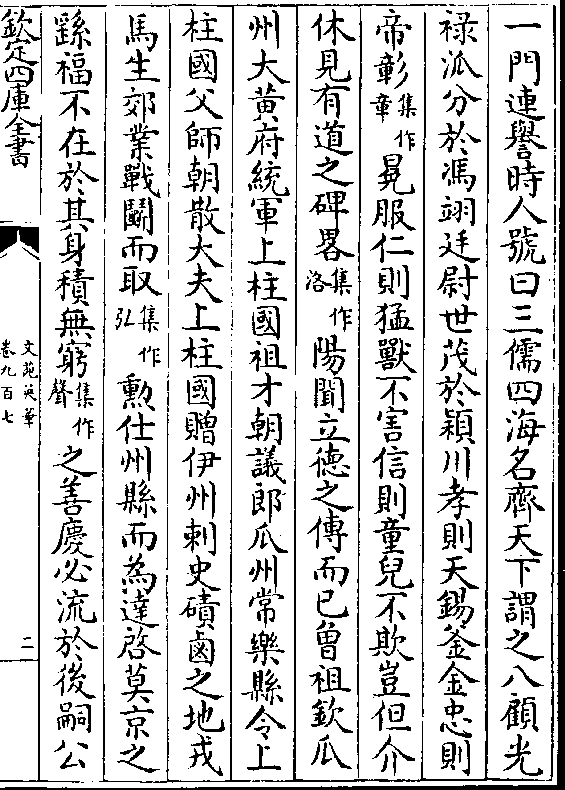 一門連譽時人號曰三儒四海名齊天下謂之八顧光
祿派分於馮翊廷尉世茂於潁川孝則天錫釜金忠則
帝彰集作章晃服仁則猛獸不害信則童兒不欺豈但介
休見有道之碑畧集作洛陽聞立德之傳而已曾祖欽瓜
州大黃府統軍上柱國祖才朝議郎瓜州常樂縣令上
柱國父師朝散大夫上柱國贈伊州刺史磧鹵之地戎
馬生郊業戰鬭而取集作弘勲仕州縣而為達啓莫京之
繇福不在於其身積無窮集作聲之善慶必流於後嗣公
欽定四庫全書
文苑英華
卷九百七
二